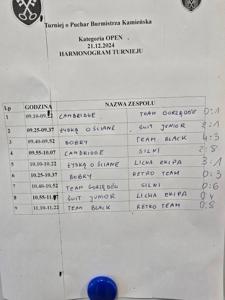 Turniej o Puchar Burmistrza Kamieńska
Kategoria OPEN
21.12.2024
HARMONOGRAM TURNIEJU
Lp GODZINA NAZWA ZESPOŁU
1 09.10-09.22 CAMBRIDGE TEAM GORZĘDÓW 0:1
2 09.25-09.37 ŁYSKĄ O ŚCIANE GUIT JUNIOR 2:1
3 09.40-09.52 BOBRY TEAM BLACK 4:3
4 09.55-10.07 CAMBRIDGE SILNI 2:8
5 10.10-10.22 ŁYSKĄ O ŚCIANE LICHA EKIPA 3:1
6 10.25-10.37 BOBRY RETRO TEAM 0:3
7 10.40-10.52 TEAM GORZĘDÓW SILNI 0:6
8 10.55-11.07 GUIT JUNIOR LICHA EKIPA 0:4
9 11.10-11.22 TEAM BLACK RETRO TEAM 0:8